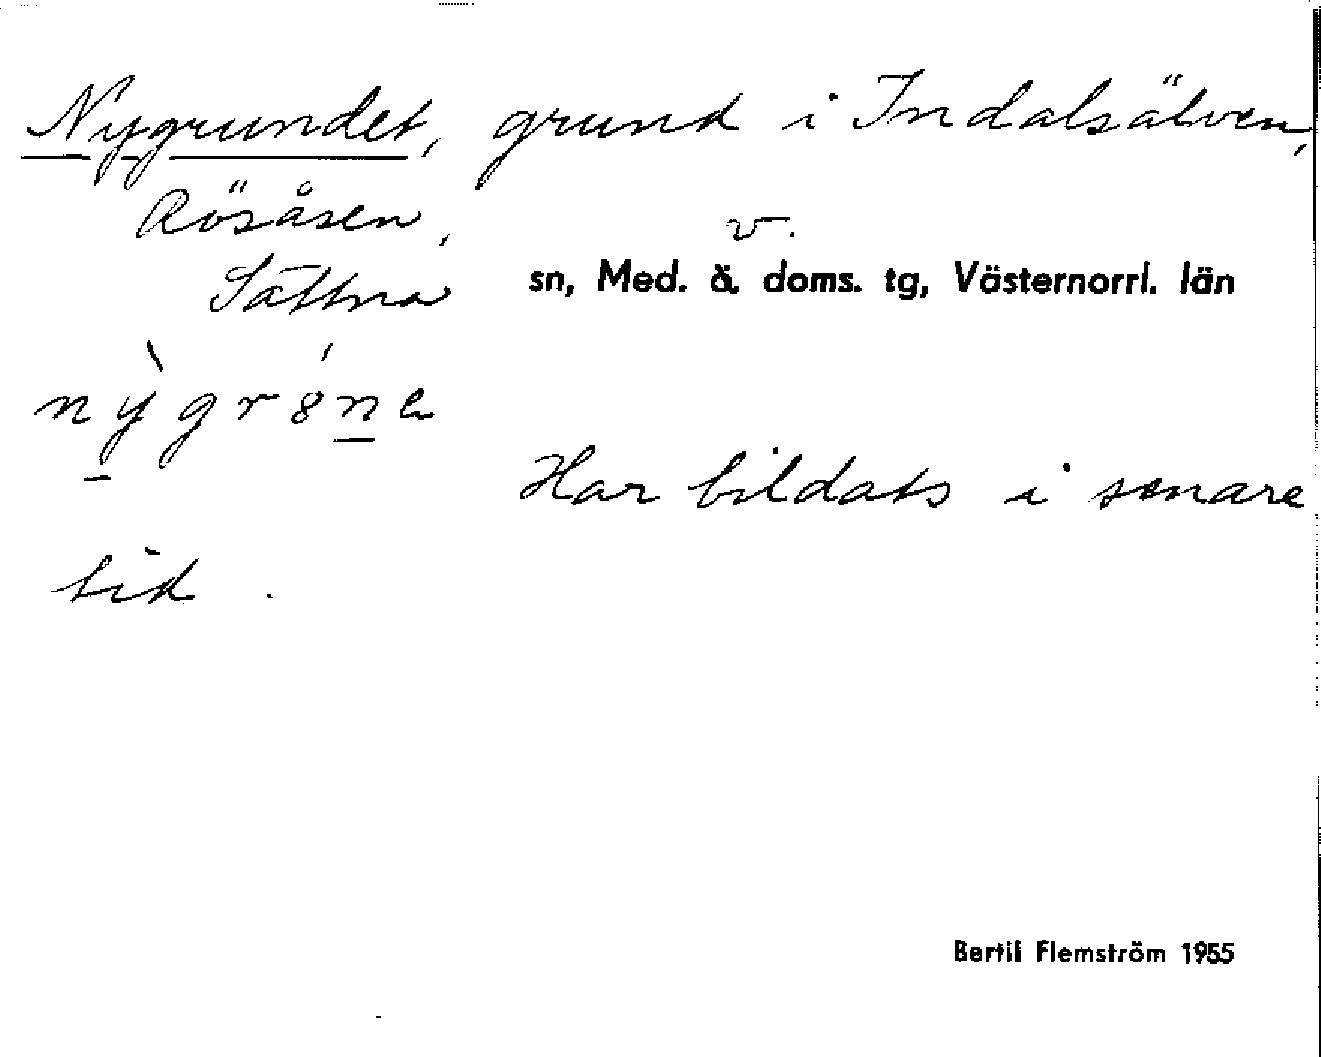 Nygrundet, grund i Indalsälven,
Rösåsen,
v.
Sättna sn, Med. ö. doms. tg, Västernorrl. län
Har bildats i senare
tid.
Bertil Flemström 1955